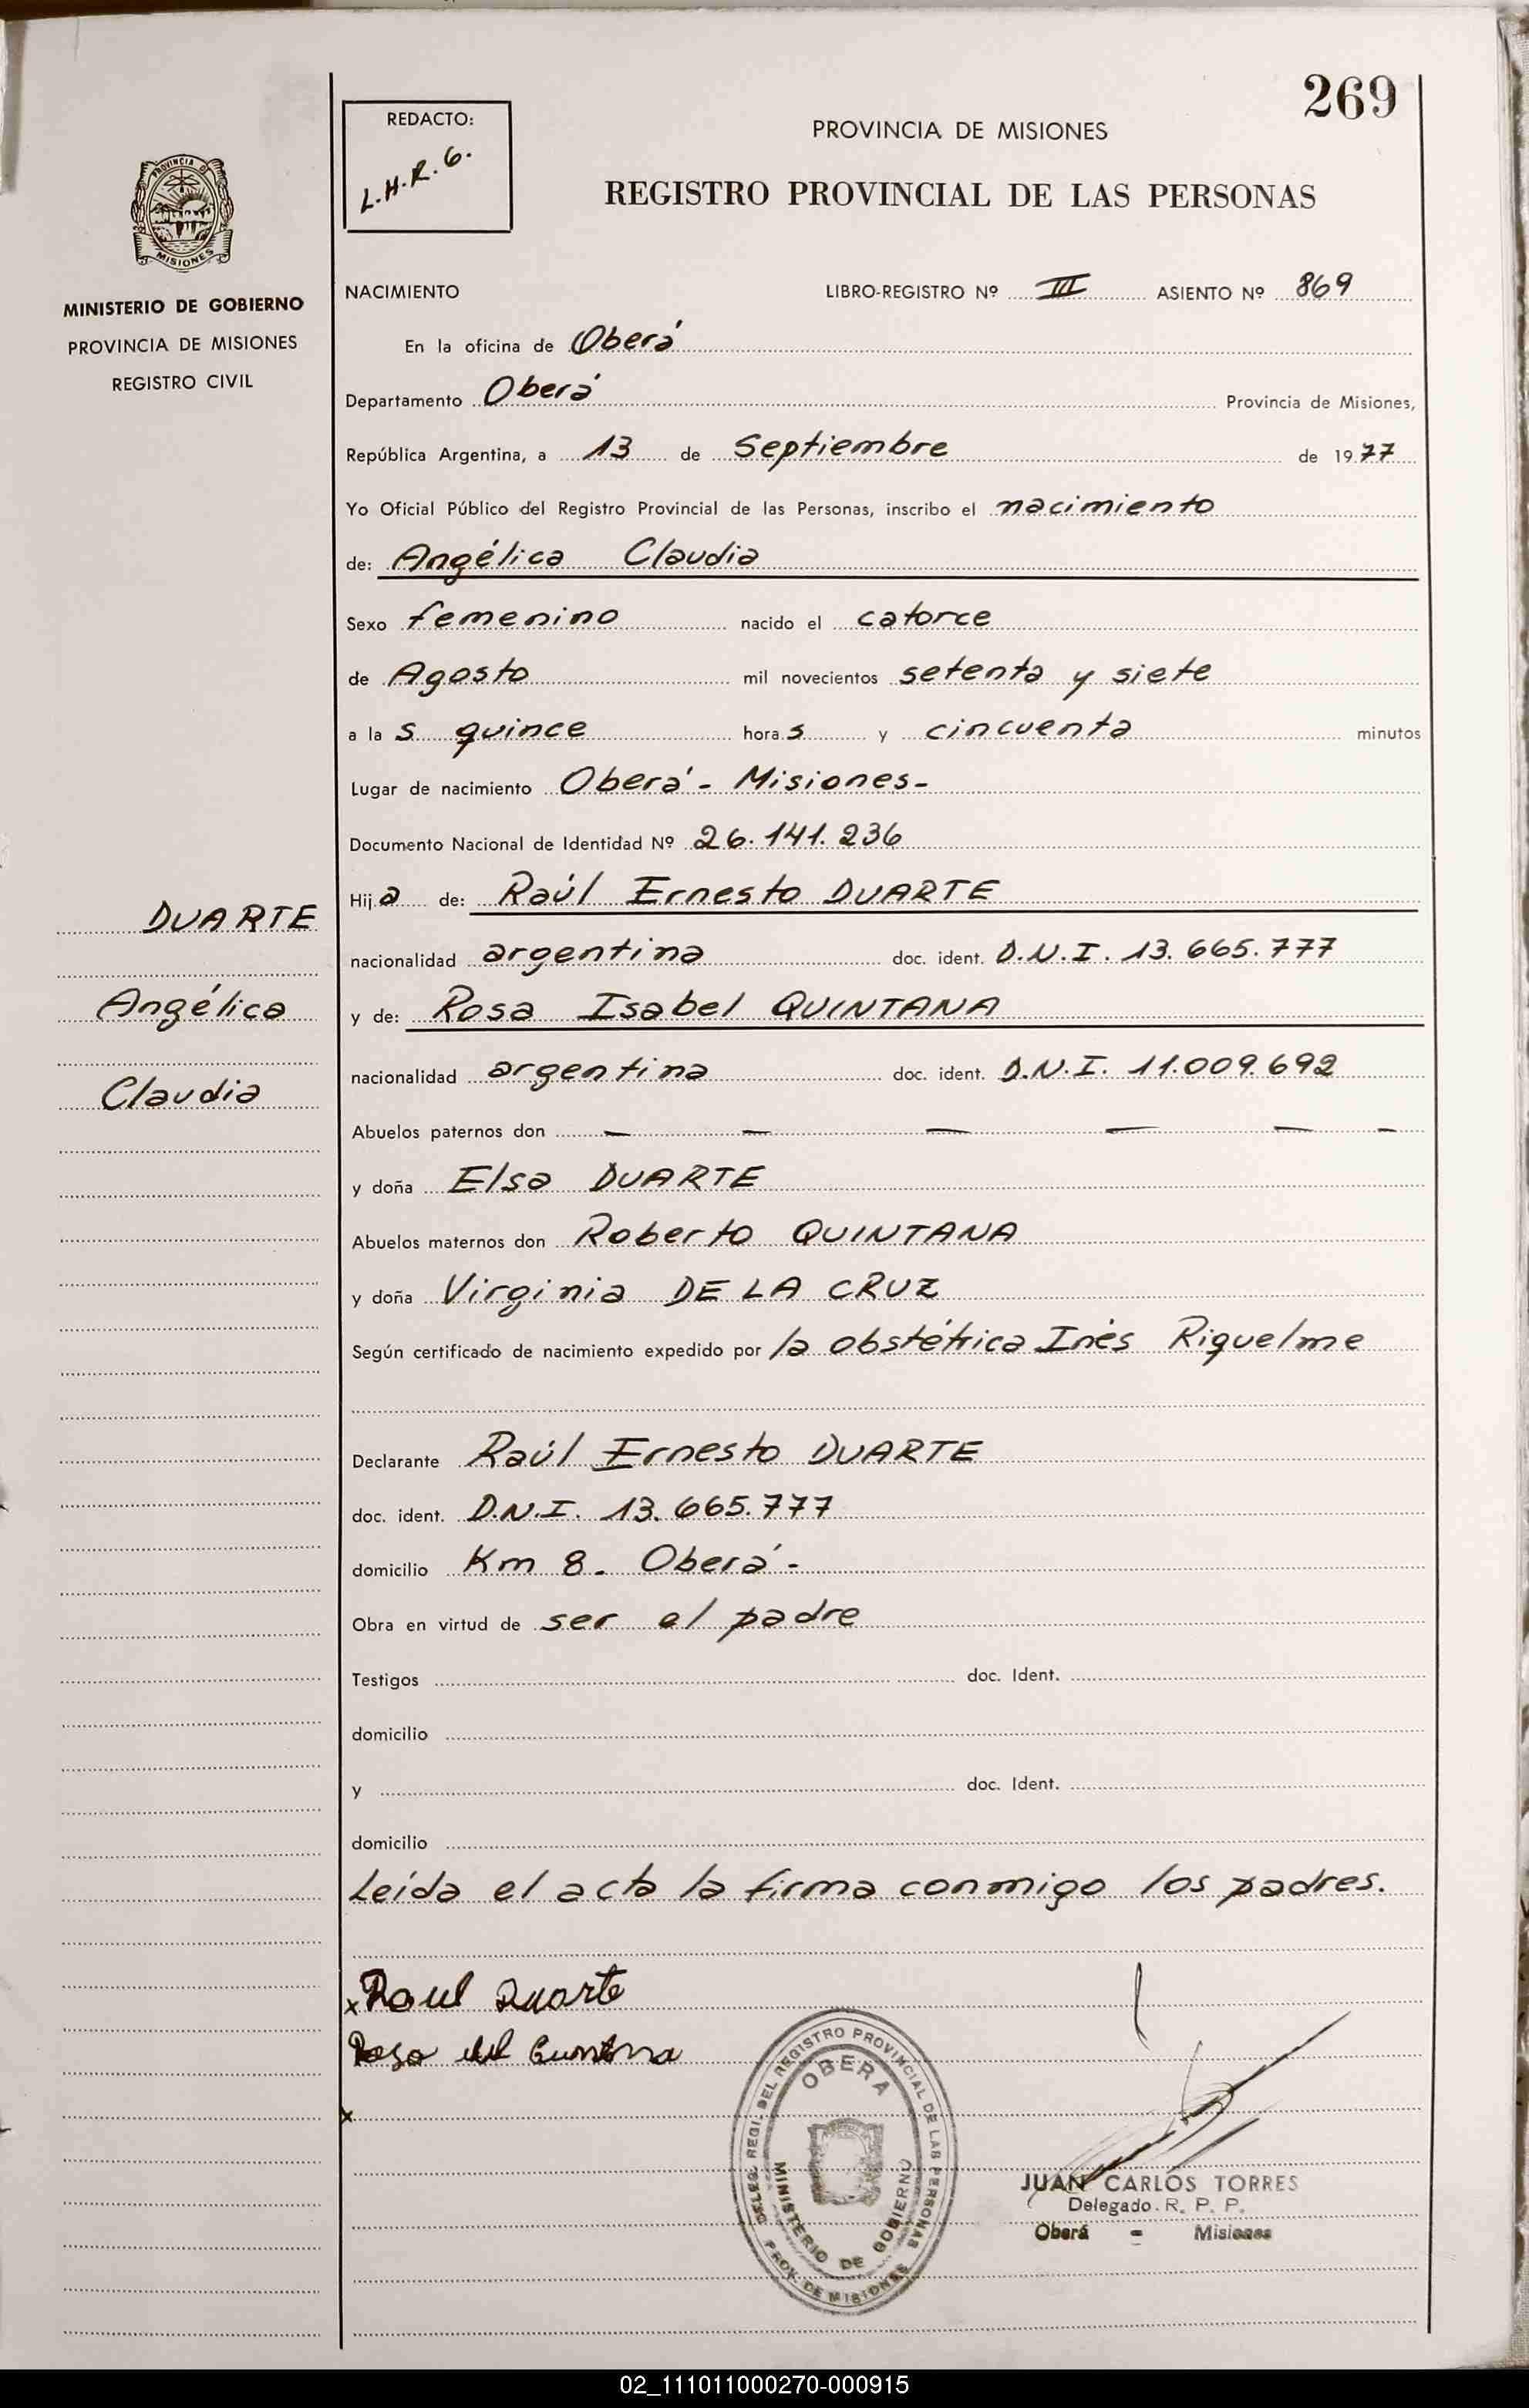 269
REDACTO:
L.H.R.G.
PROVINCIA DE MISIONES
REGISTRO PROVINCIAL DE LAS PERSONAS
PROVINCIA DE
MISIONES
MINISTERIO DE GOBIERNO
PROVINCIA DE MISIONES
REGISTRO CIVIL
NACIMIENTO LIBRO-REGISTRO Nº III ASIENTO Nº 869
En la oficina de Oberá
Departamento Oberá Provincia de Misiones,
República Argentina, a 13 de Septiembre de 1977
Yo Oficial Público del Registro Provincial de las Personas, inscribo el nacimiento
de: Angélica Claudia
Sexo femenino nacido el catorce
de Agosto mil novecientos setenta y siete
a la s quince hora s y cincuenta minutos
Lugar de nacimiento Oberá - Misiones -
Documento Nacional de Identidad Nº 26.141.236
Hija de: Raúl Ernesto DUARTE
DUARTE
nacionalidad argentina doc. ident. D.N.I. 13.665.777
Angélica
y de: Rosa Isabel QUINTANA
nacionalidad argentina doc. ident. D.N.I. 11.009.692
Claudia
Abuelos paternos don — — — — — —
y doña Elsa DUARTE
Abuelos maternos don Roberto QUINTANA
y doña Virginia DE LA CRUZ
Según certificado de nacimiento expedido por la obstétrica Inés Riquelme
Declarante Raúl Ernesto DUARTE
doc. ident. D.N.I. 13.665.777
domicilio Km 8. Oberá -
Obra en virtud de ser el padre
Testigos doc. Ident.
domicilio
y doc. Ident.
domicilio
Leída el acta la firma conmigo los padres.
x Raul Duarte
Rosa
x
DELEG. REGI. DEL REGISTRO PROVINCIAL DE LAS PERSONAS
OBERA
MINISTERIO DE GOBIERNO
PROV. DE MISIONES
JUAN CARLOS TORRES
Delegado R. P. P.
Oberá - Misiones
02_111011000270-000915